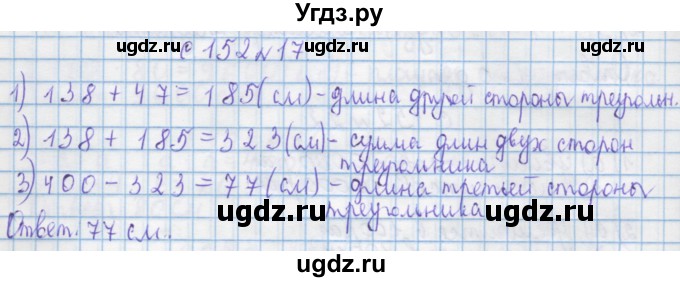 Угдз.ру
ugdz.ru ugdz.ru ugdz.ru
с 152 №17
1) 138 + 47 = 185 (см) - длина другой стороны треугольн.
2) 138 + 185 = 323 (см) - сумма длин двух сторон
треугольника
3) 400 - 323 = 77 (см) - длина третьей стороны
треугольника
ugdz.ru ugdz.ru ugdz.ru
Ответ. 77 см.
ugdz.ru ugdz.ru ugdz.ru